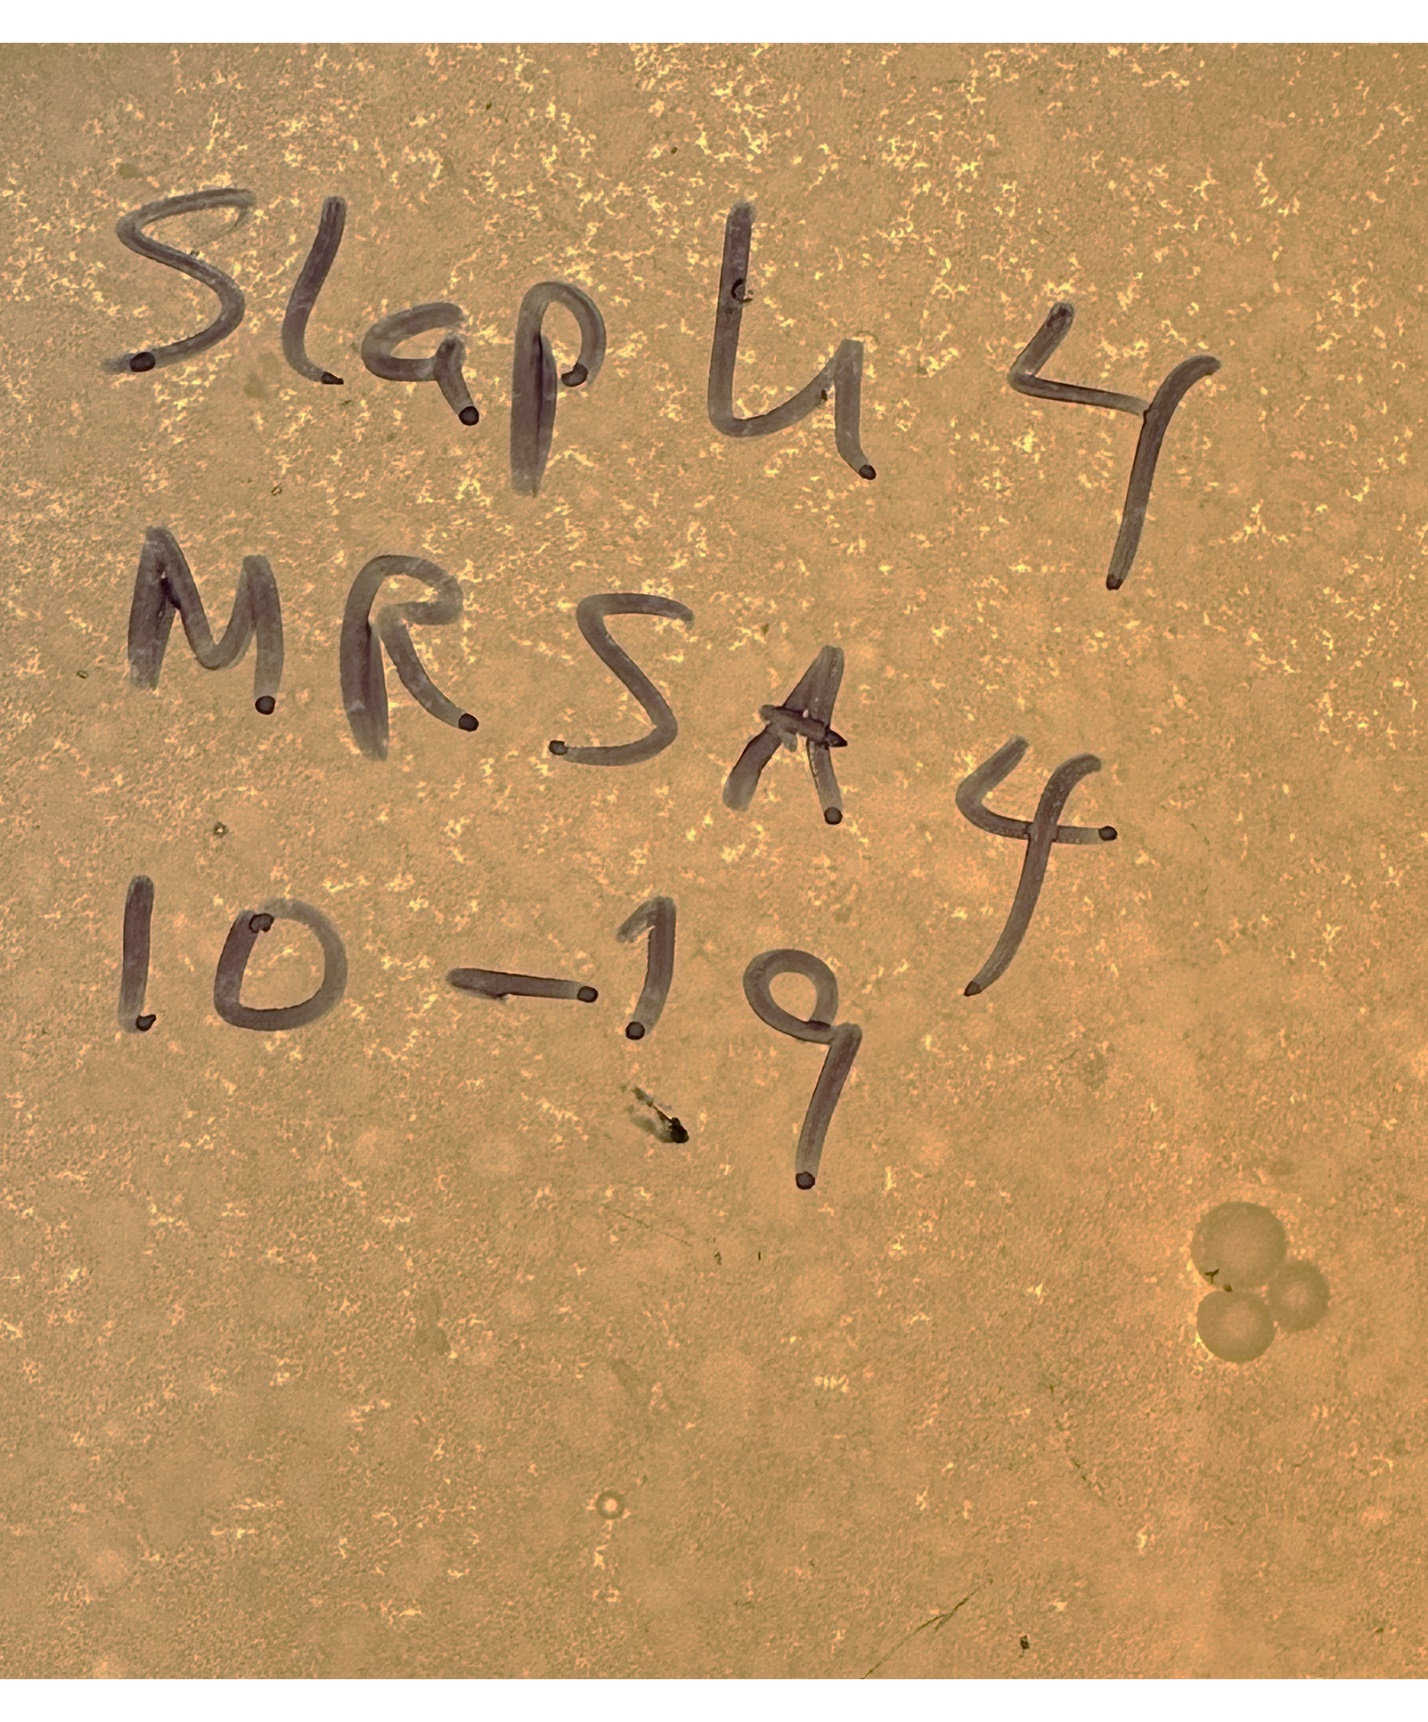 Staph 4
MRSA 4
10-19